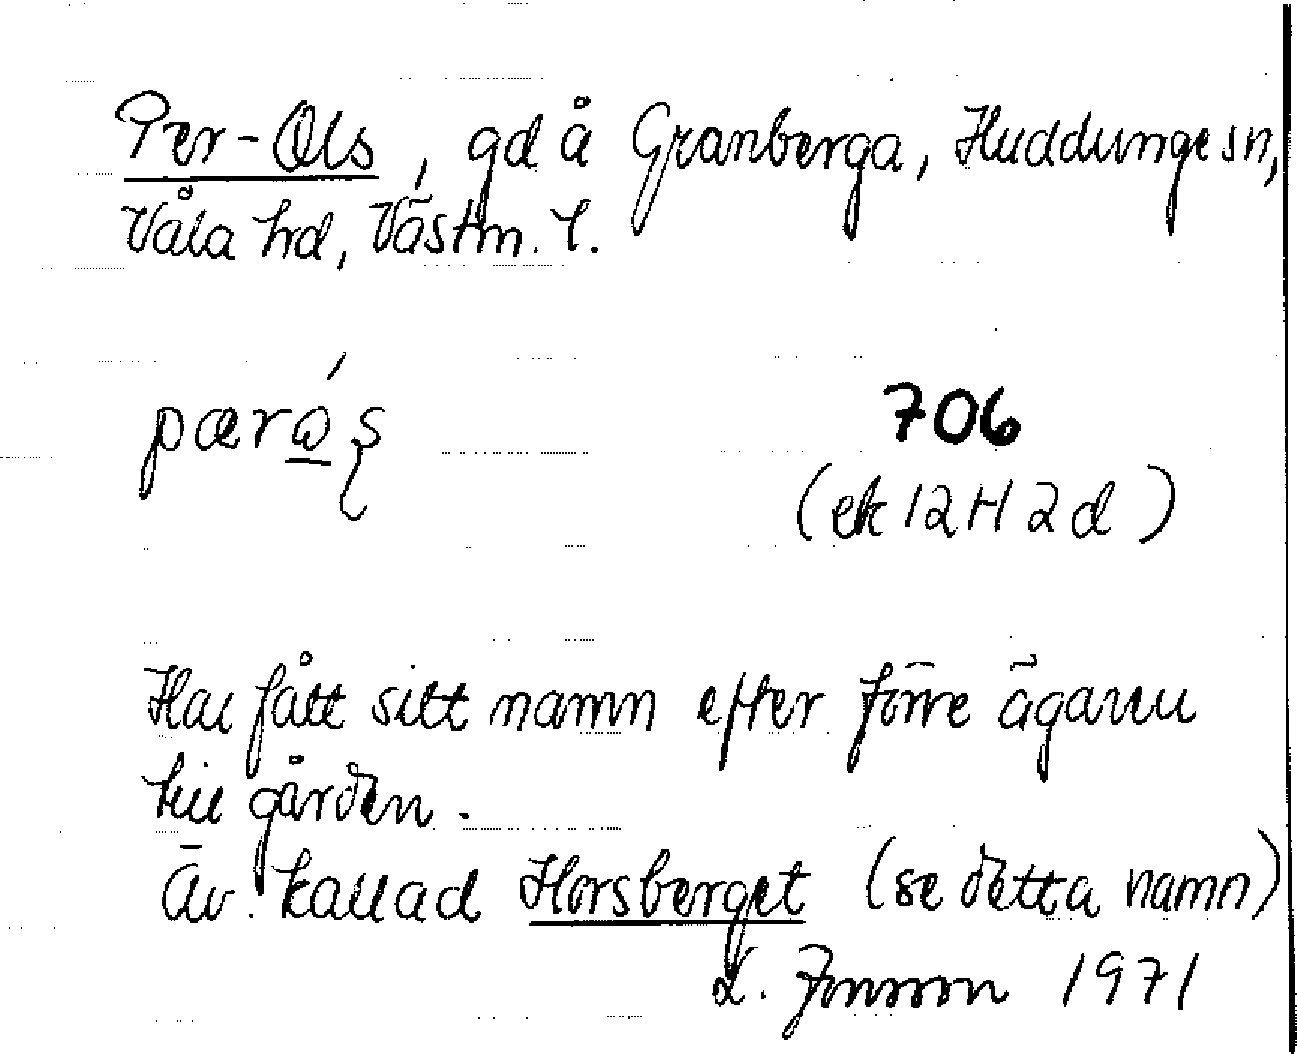 Per-Ols, gd å Granberga, Huddunge sn,
Våla hd, Västm. l.
706
(ek 12H 2d)
Har fått sitt namn efter förre ägaren
till gården.
Äv. kallad Horsberget (se detta namn)
K. Jonsson 1971